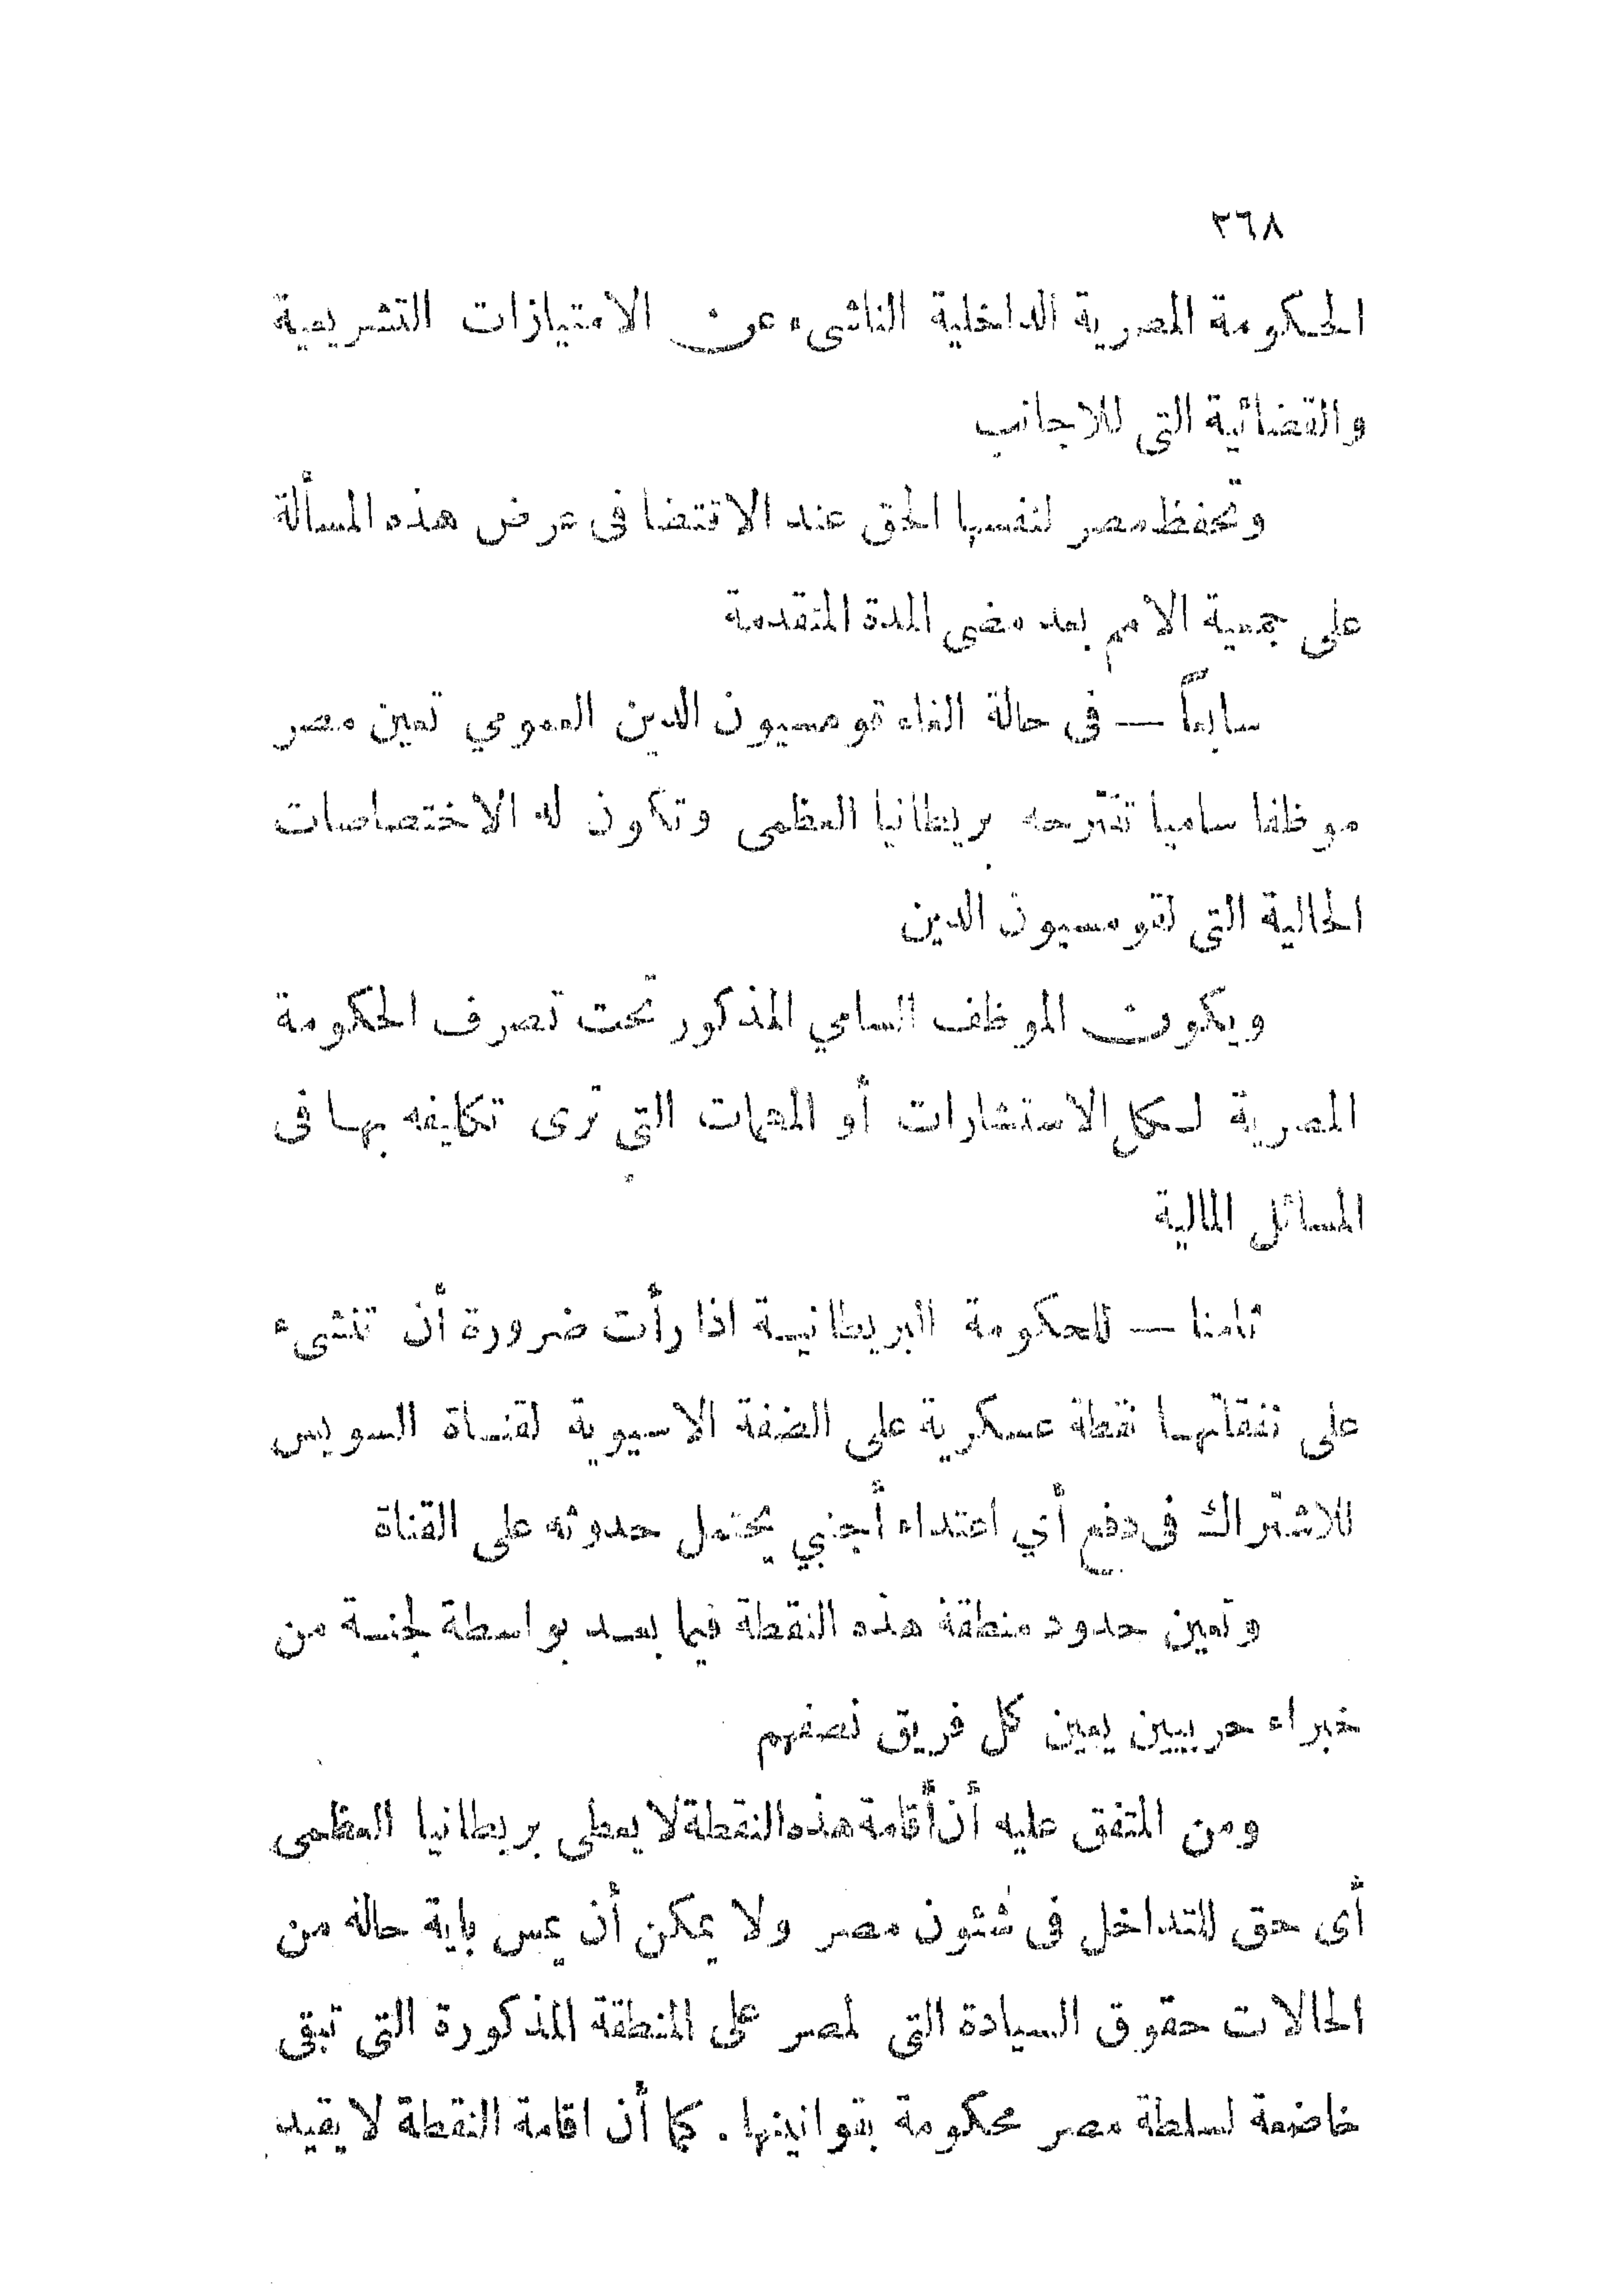 ٢٦٨
الحكومة المصرية الداخلية الناشىء عن الامتيازات التشريعية
والقضائية التى للاجانب
وتحفظ مصر لنفسها الحق عند الاقتضا فى عرض هذه المسألة
على جمعية الامم بعد مضى المدة المتقدمة
سابعاً — فى حالة الغاء قومسيون الدين العمومي تعين مصر
موظفا ساميا تقترحه بريطانيا العظمى وتكون له الاختصاصات
الحالية التى لقومسيون الدين
ويكون الموظف السامي المذكور تحت تصرف الحكومة
المصرية لكل الاستشارات أو المهمات التي ترى تكليفه بها فى
المسائل المالية
ثامنا — للحكومة البريطانية اذا رأت ضرورة أن تنشىء
على نفقاتها نقطة عسكرية على الضفة الاسيوية لقناة السويس
للاشتراك فى دفع أي اعتداء أجنبي يحتمل حدوثه على القناة
وتعين حدود منطقة هذه النقطة فيما بعد بواسطة لجنة من
خبراء حربيين يعين كل فريق نصفهم
ومن المتفق عليه أن أقامة هذه النقطة لا يعطى بريطانيا العظمى
أى حق للتداخل فى شئون مصر ولا يمكن أن يمس باية حالة من
الحالات حقوق السيادة التى لمصر على المنطقة المذكورة التى تبقى
خاضعة لسلطة مصر محكومة بقوانينها . كما أن اقامة النقطة لا يقيد